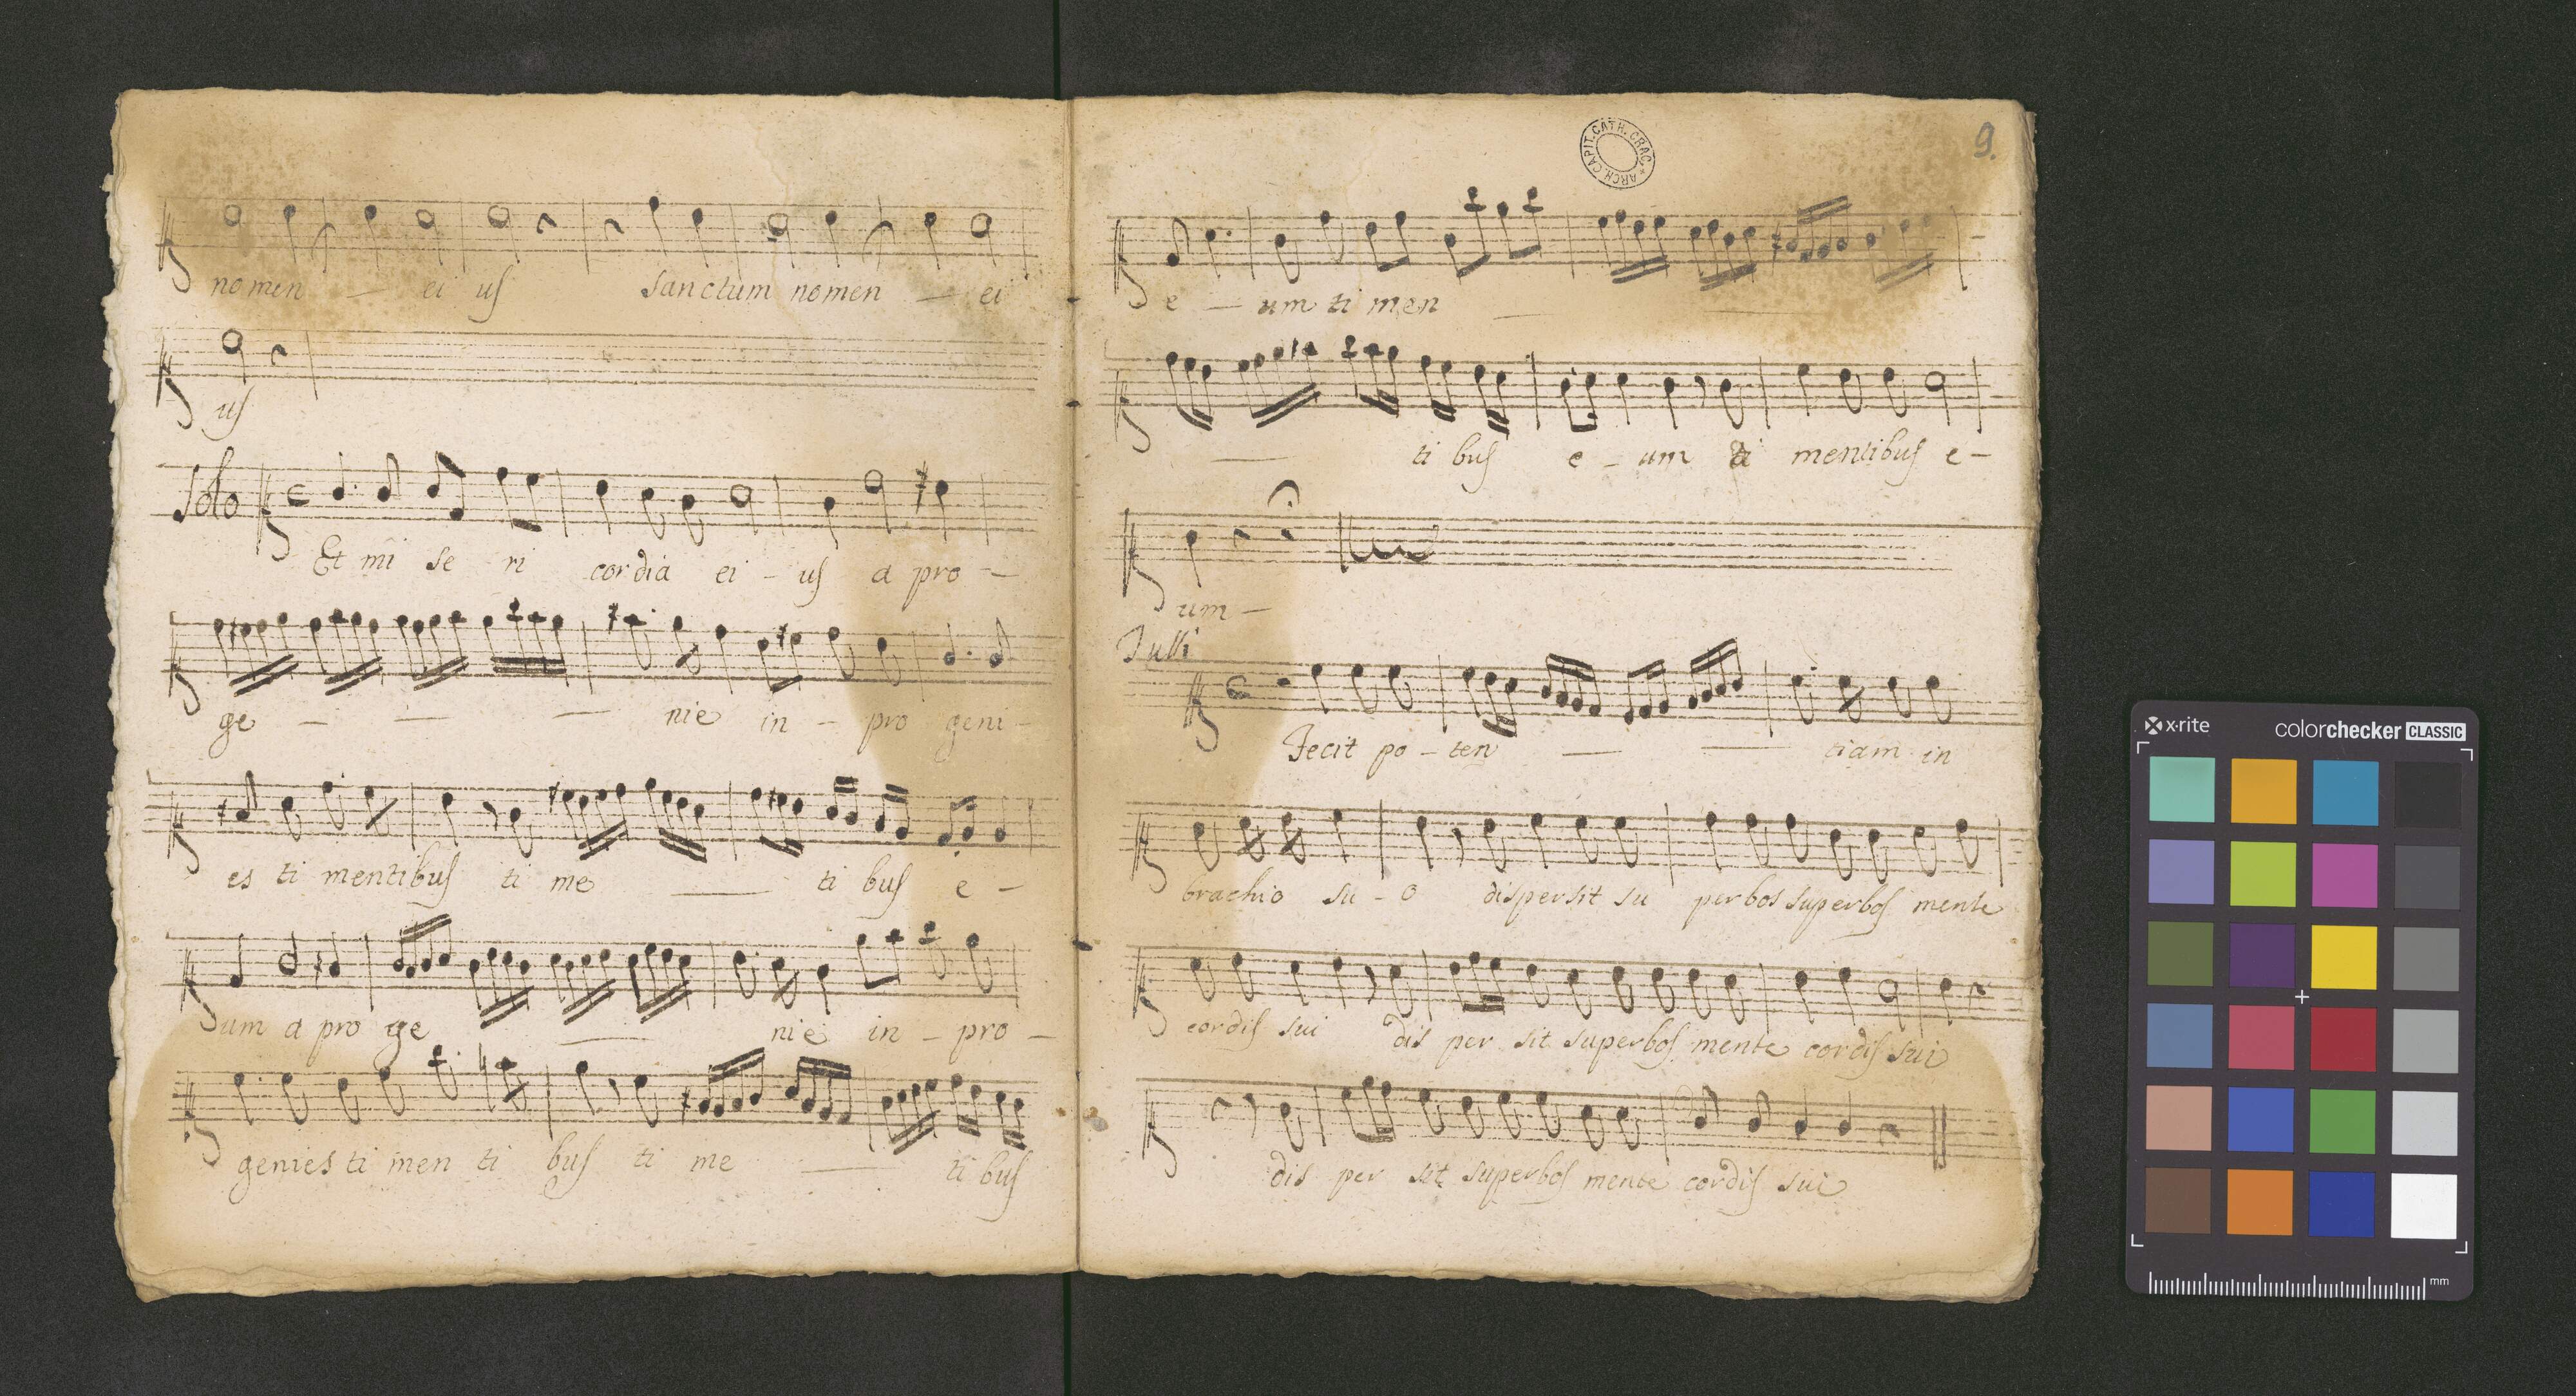 nomen — ei us sanctum nomen — ei
us
Solo
Et mi se ri cordia ei - us a pro -
ge - — — nie in - pro geni -
es ti mentibus ti me — ti bus e -
um a pro ge — nie in - pro -
genies ti men ti bus ti me — ti bus
ARCH. CAPIT. CATH. CRAC. *
9.
e - um ti men — —
— ti bus e - um ti mentibus e -
um -
Tutti
Fecit po - ten — — tiam in
brachio su - o dispersit su perbos superbos mente
cordis sui dis per sit superbos mente cordis sui
dis per sit superbos mente cordis sui
x-rite colorchecker CLASSIC
mm